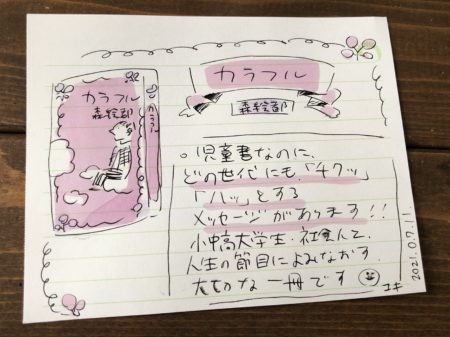 カラフル
森絵都
カラフル
カラフル
森絵都
○児童書なのに、
どの世代にも、「チクッ」
「ハッ」とする
メッセージがあります!!
小中高大学生・社会人と、
人生の節目によみなおす、
大切な一冊です
ユキ
2021.07.11.